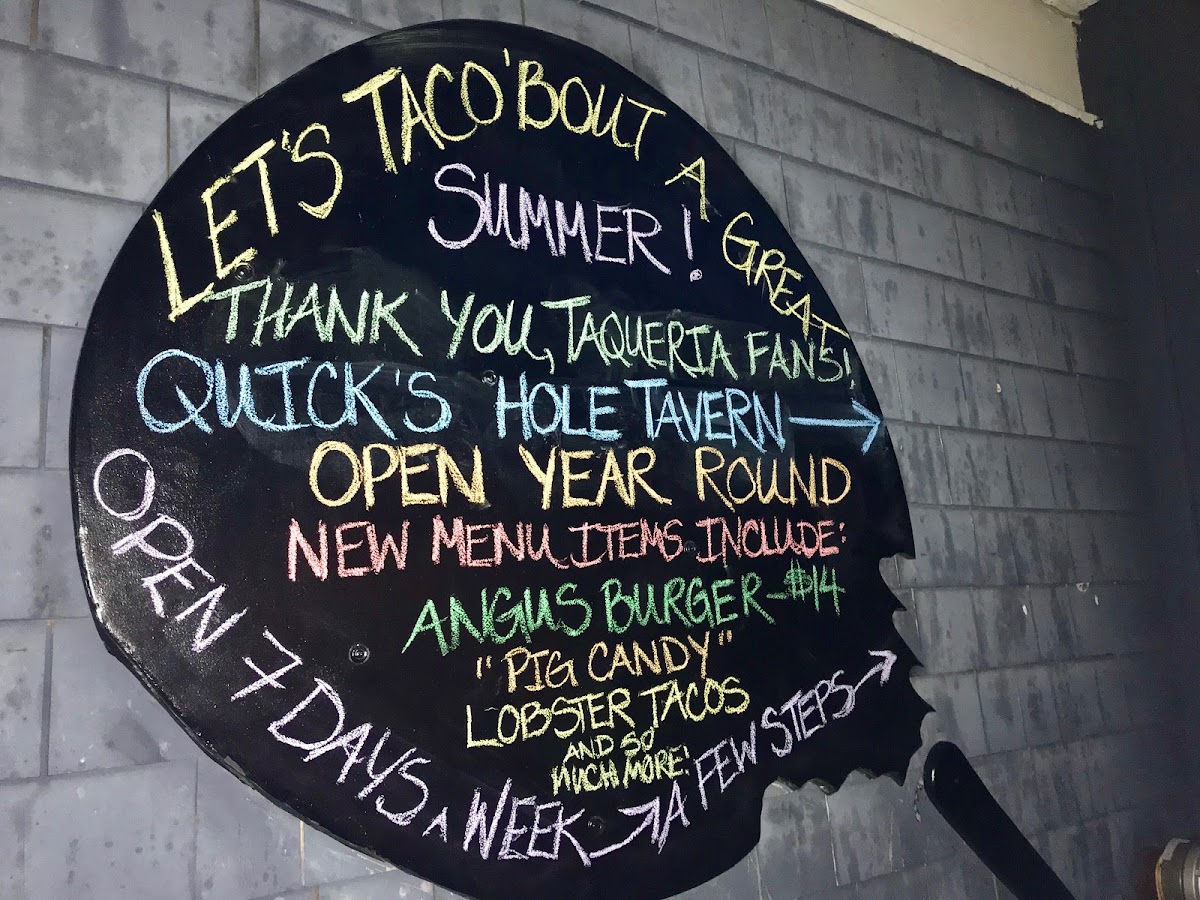 LET'S TACO 'BOUT A GREAT
SUMMER!
THANK YOU, TAQUERIA FANS!
QUICK'S HOLE TAVERN →
OPEN YEAR ROUND
NEW MENU ITEMS INCLUDE:
ANGUS BURGER - $14
"PIG CANDY"
LOBSTER TACOS
AND SO
MUCH MORE!
OPEN 7 DAYS A WEEK → A FEW STEPS →